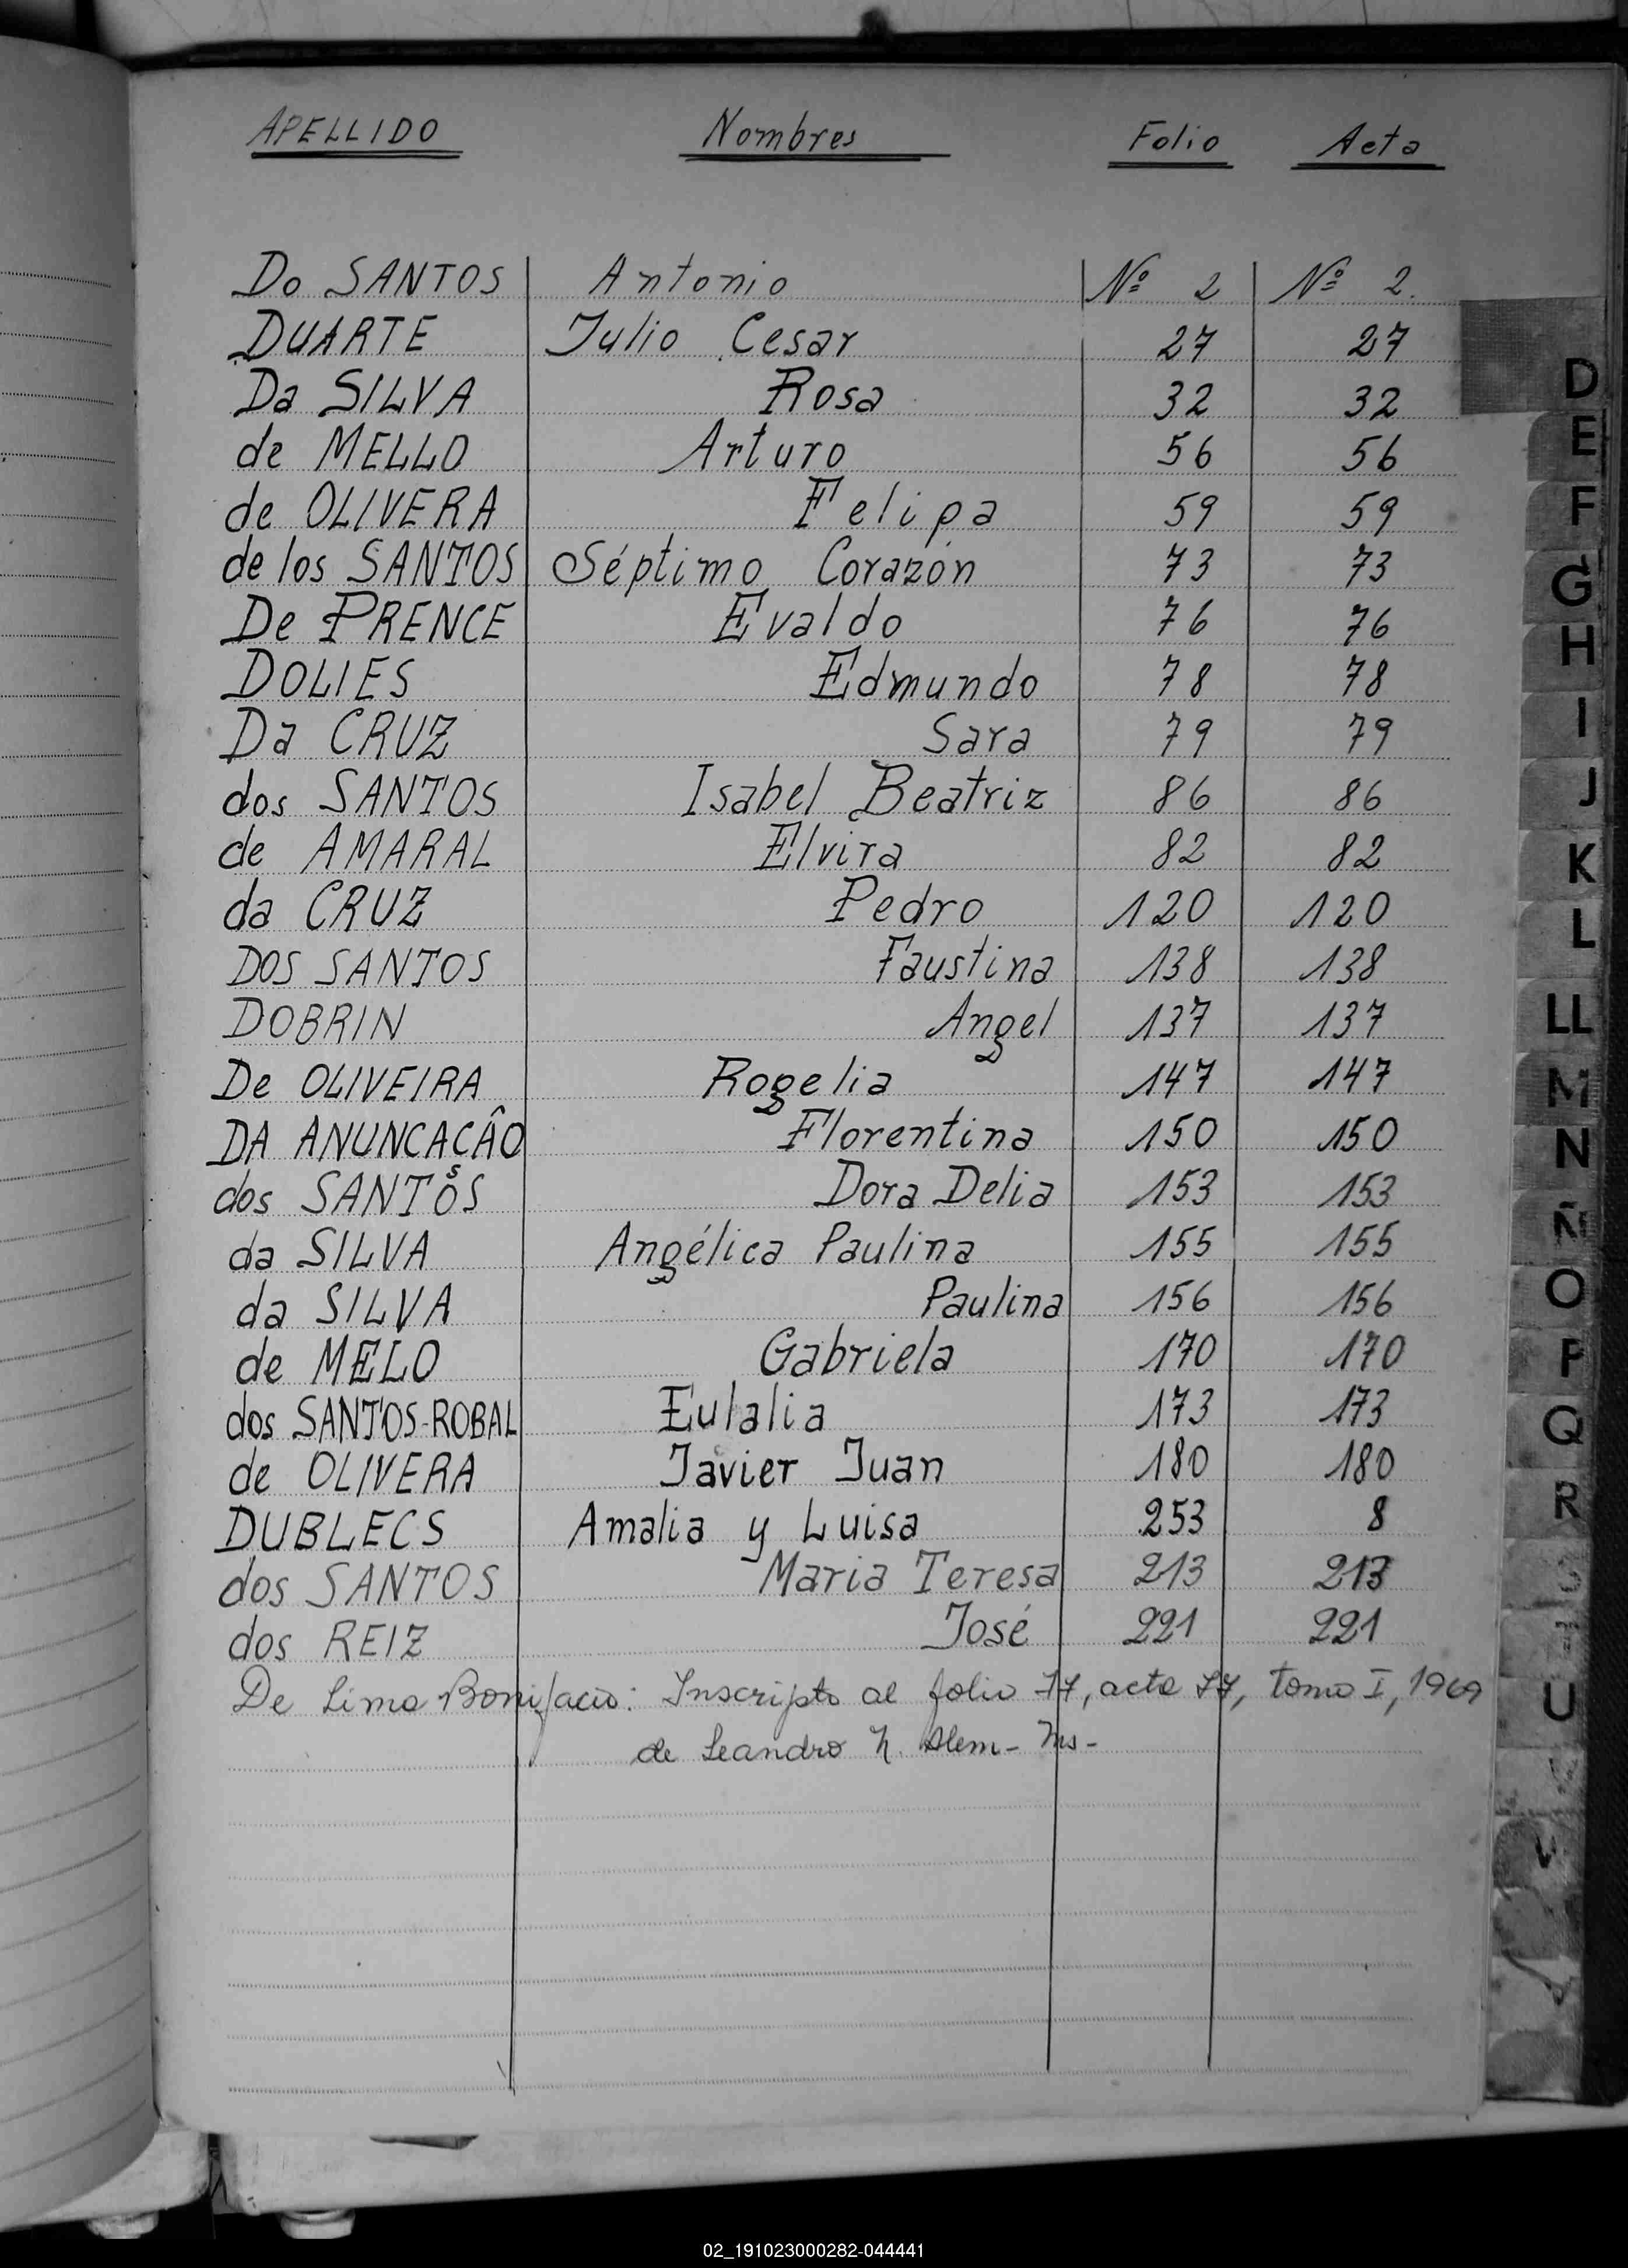 APELLIDO Nombres Folio Acta
Do SANTOS Antonio Nº 2 Nº 2.
DUARTE Julio Cesar 27 27
Da SILVA Rosa 32 32
de MELLO Arturo 56 56
de OLIVERA Felipa 59 59
de los SANTOS Séptimo Corazón 73 73
De PRENCE Evaldo 76 76
DOLIES Edmundo 78 78
Da CRUZ Sara 79 79
dos SANTOS Isabel Beatriz 86 86
de AMARAL Elvira 82 82
da CRUZ Pedro 120 120
DOS SANTOS Faustina 138 138
DOBRIN Angel 137 137
De OLIVEIRA Rogelia 147 147
DA ANUNCAÇÂO Florentina 150 150
dos SANTOS Dora Delia 153 153
da SILVA Angélica Paulina 155 155
da SILVA Paulina 156 156
de MELO Gabriela 170 170
dos SANTOS-ROBAL Eulalia 173 173
de OLIVERA Javier Juan 180 180
DUBLECS Amalia y Luisa 253 8
dos SANTOS Maria Teresa 213 213
dos REIZ José 221 221
De Lima Bonifacio: Inscripto al folio 77, acta 77, tomo I, 1969
de Leandro N. Alem - Ms -
D
E
F
G
H
I
J
K
L
LL
M
N
Ñ
O
P
Q
R
S
T
U
V
02_191023000282-044441